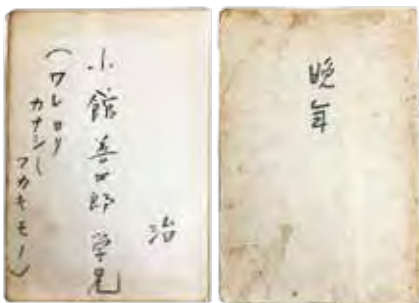 晩年
治
小館善四郎学兄
(ワレヨリ
カナシ
フカキモノ)